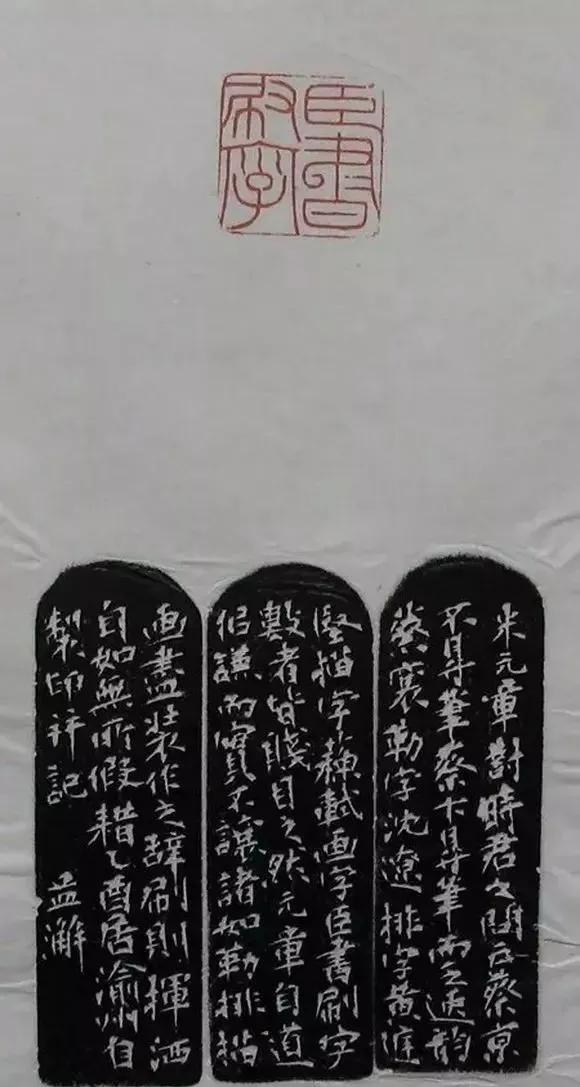 臣書
刷字
米元章對時君之問云蔡京
不得筆蔡卞得筆而乏逸韵
蔡襄勒字沈遼排字黄庭
堅描字蘇軾画字臣書刷字
數者皆賤目之然元章自道
佀謙而實不讓諸如勒排描
画盡装作之辞刷則揮洒
自如無所假耤乙酉居渝州自
製印并記 益澥